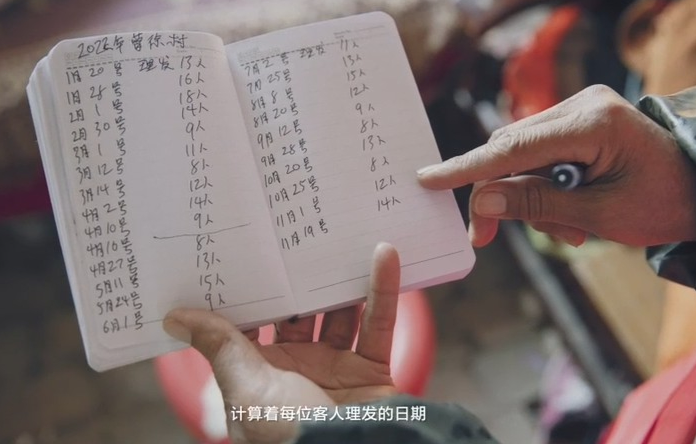 2022年曾你村
1月20号 理发 13人
1月28号 16人
2月1号 18人
2月30号 14人
3月1号 9人
3月12号 11人
3月14号 8人
4月2号 12人
4月10号 14人
4月16号 9人
4月27号 8人
5月11号 13人
5月24号 15人
6月1号 9人
7月2号 理发 17人
7月25号 13人
8月8号 15人
8月20号 12人
9月12号 9人
9月28号 8人
10月20号 13人
10月25号 8人
11月1号 12人
11月19号 14人
计算着每位客人理发的日期